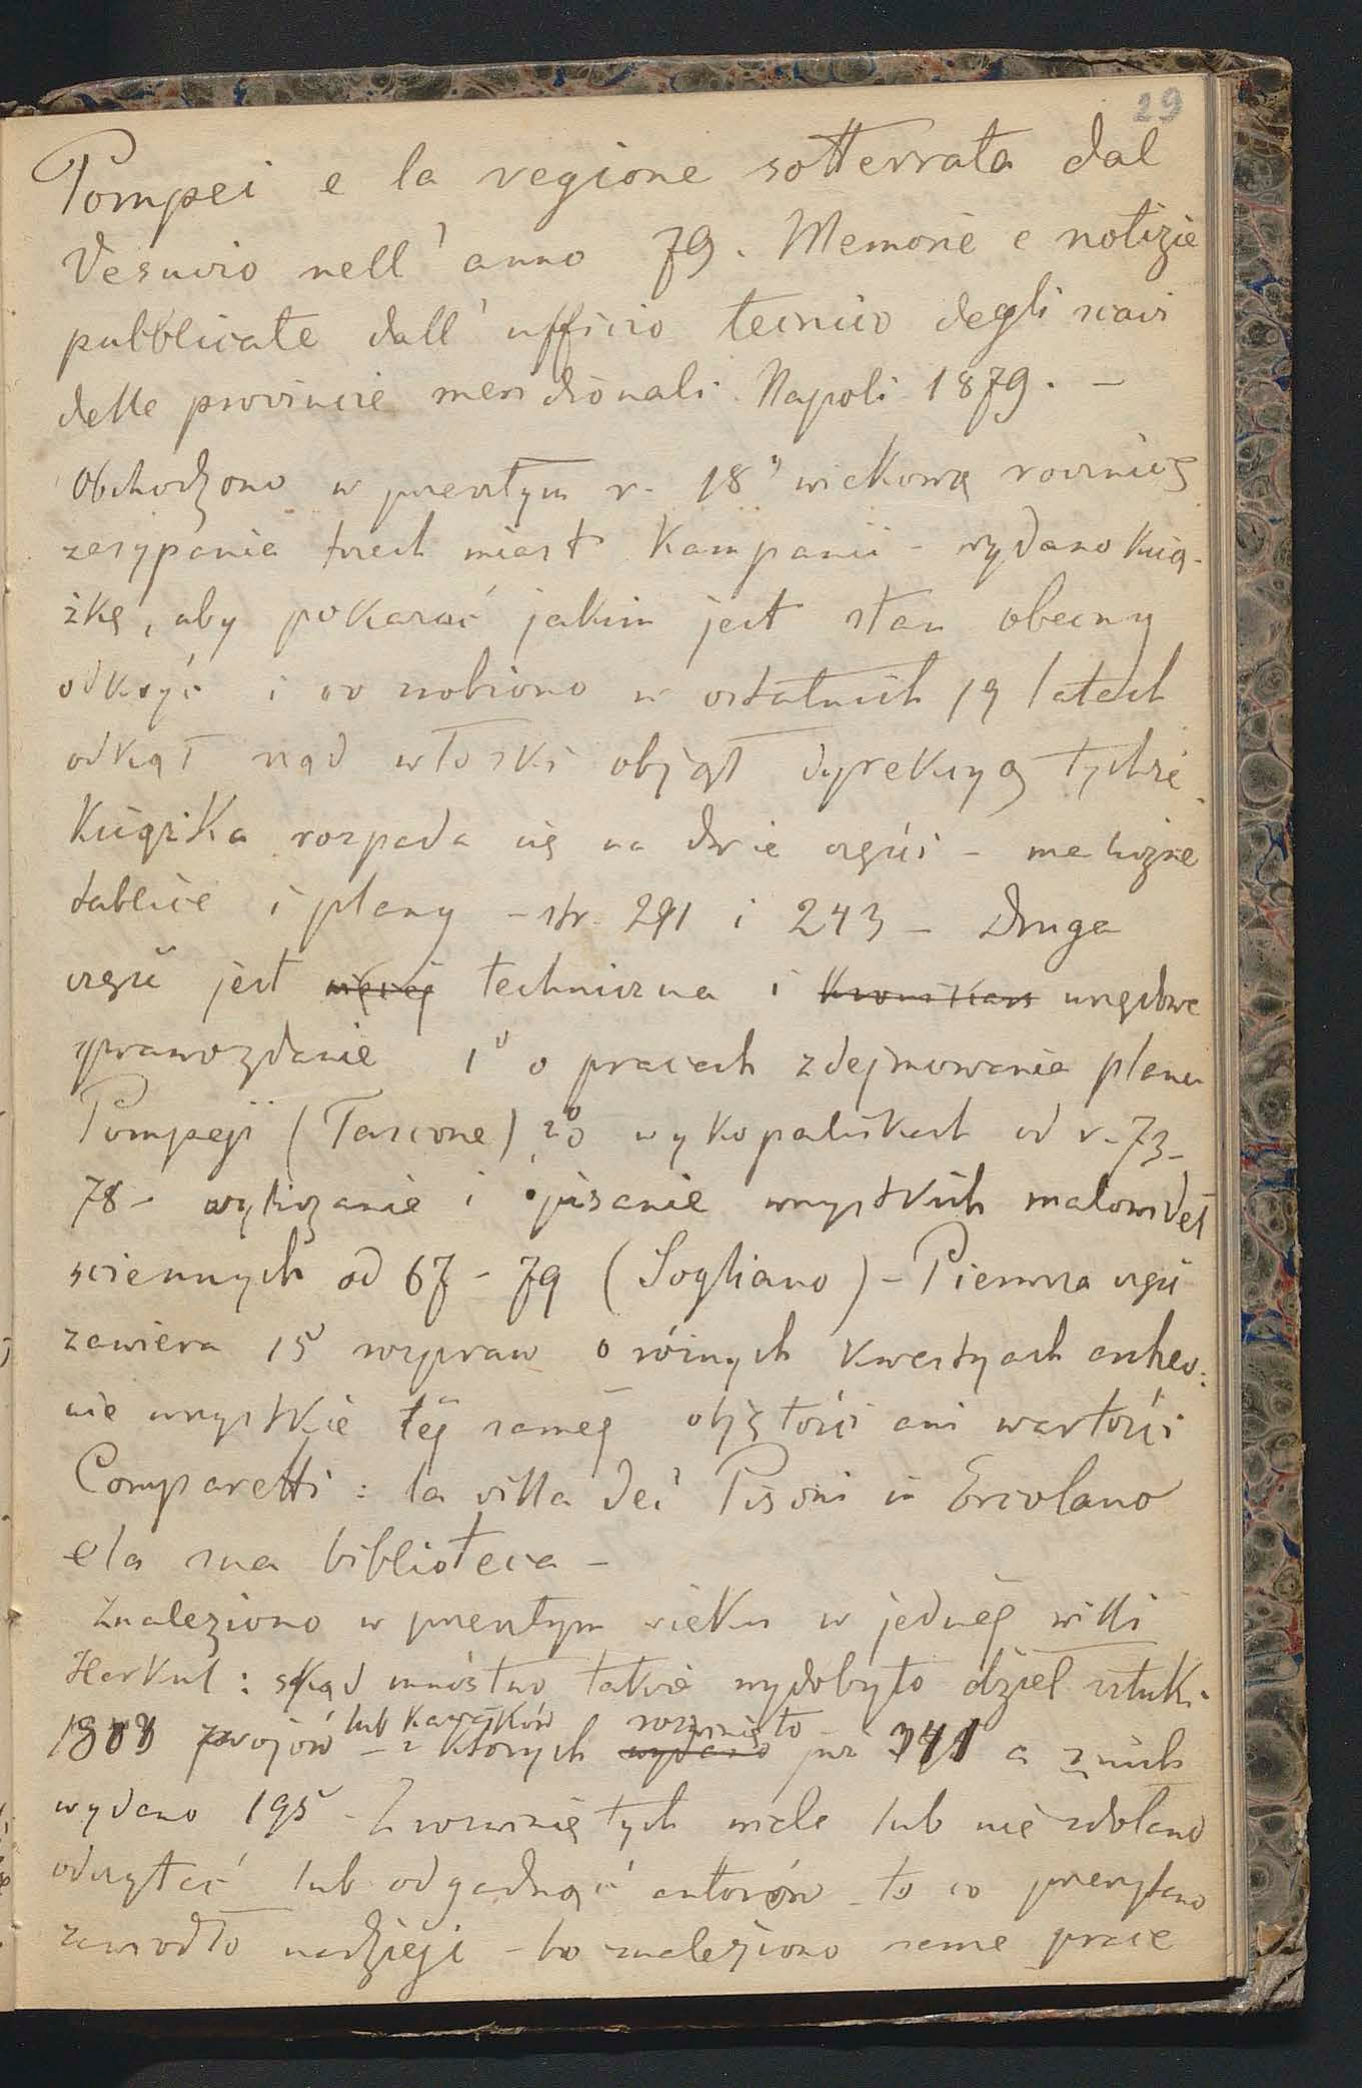 29
Pompei e la regione sotterrata dal
Vesuvio nell' anno 79. Memorie e notizie
pubblicate dall' ufficio tecnico degli scavi
delle provincie meridionali. Napoli 1879. –
Obchodzono w przeszłym r. 18 wiekową rocznicę
zasypania trzech miast Kampanii – wydano ksią-
żkę, aby pokazać jakim jest stan obecny
odkryć i co zrobiono w ostatnich 19 latach
odkąd rząd włoski objął dyrekcyą tychże
Książka rozpada się na dwie części – me liczne
tablice i plany – str. 291 i 243 – Druga
część jest więcej techniczna i urzędowe
sprawozdanie 1º o pracach zdejmowania planu
Pompeji (Tascone) 2º o wykopaliskach od r. 73-
78 – wyliczanie i opisanie wszystkich malowideł
sciennych od 67 – 79 (Sogliano) – Pierwsza część
zawiera 15 rozpraw o różnych kwestyach archeo:
nie wszystkie téj saméj objętości ani wartości
Comparetti: la villa dei Pisoni in Ercolano
e la sua biblioteca –
Znaleziono w przeszłym wieku w jednéj willi
Herkul: skąd mnóstwo także wydobyto dzieł sztuki
1803 zwojów lub kawałków – z których wydano rozwinięto już 341 a z nich
wydano 195 – Z rozwiniętych wiele lub nie zdołano
odczytać lub odgadnąć autorów – to co przeczytano
zawiodło nadzieje – bo znaleziono same prace